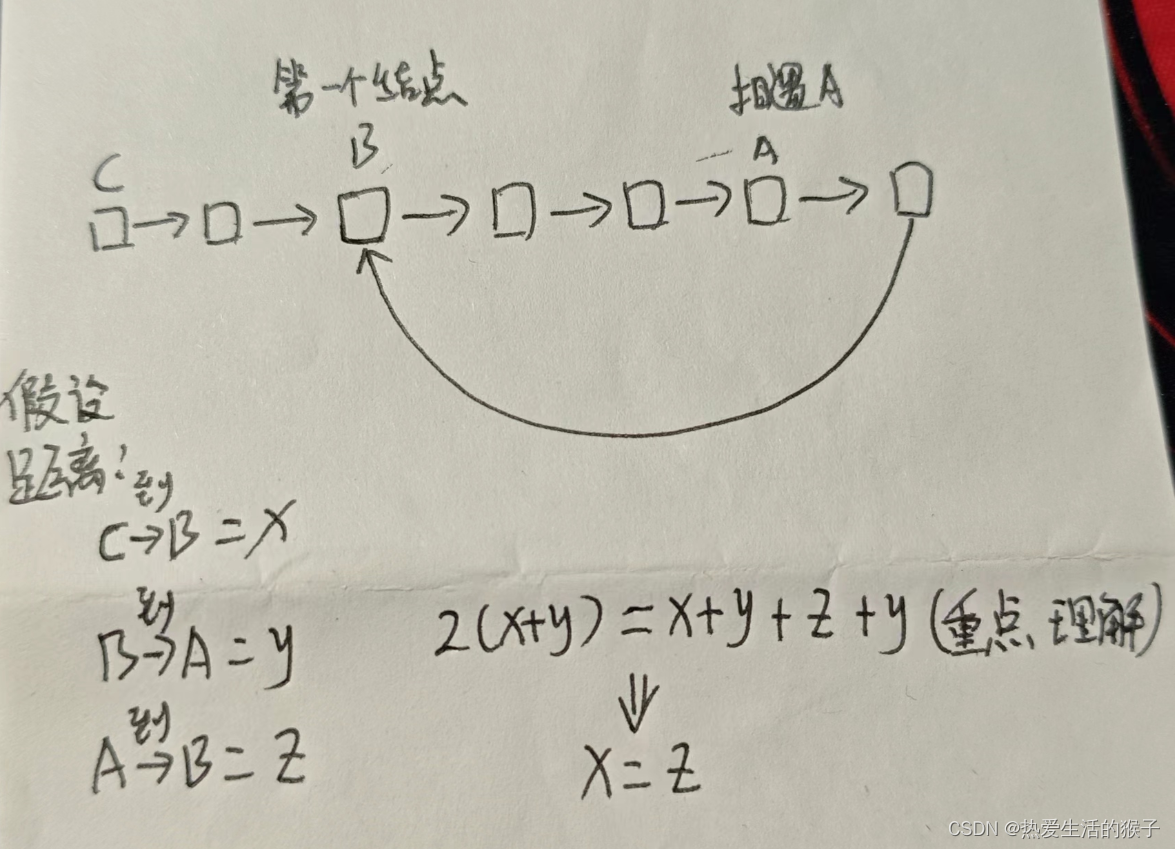 第一个结点
相遇A
B
A
C
假设
距离:
到
C→B=x
到
B→A=y
2(x+y)=x+y+z+y(重点理解)
⇓
到
A→B=z
x=z
CSDN @热爱生活的猴子